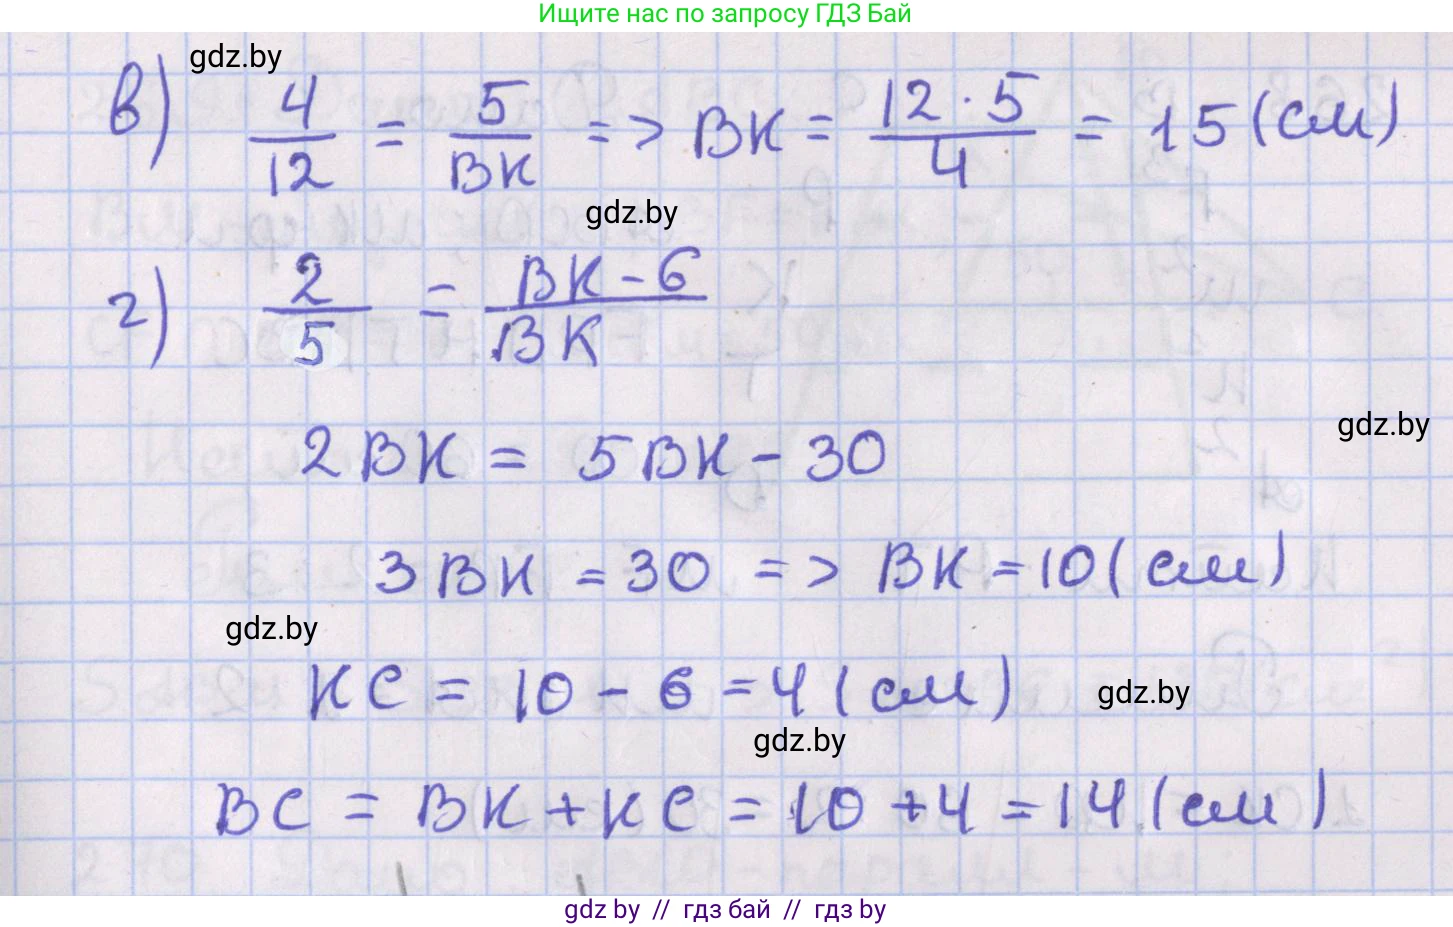 Ищите нас по запросу ГДЗ Бай
gdz.by
в) 4/12 = 5/BK => BK = 12·5/4 = 15 (см)
gdz.by
г) 2/5 = BK-6/BK
gdz.by
2BK = 5BK - 30
3BK = 30 => BK = 10 (см)
gdz.by
KC = 10 - 6 = 4 (см)
gdz.by
gdz.by
BC = BK + KC = 10 + 4 = 14 (см)
gdz by // гдз бай // гдз by